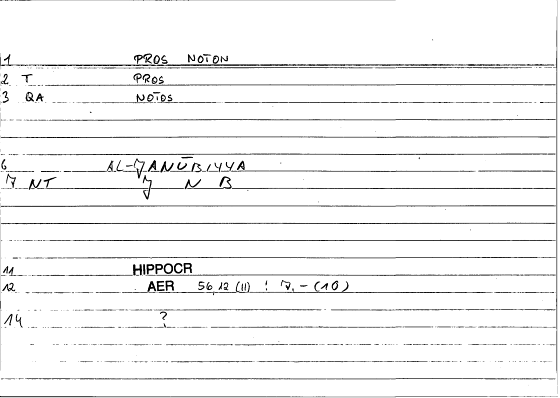 1 PROS NOTON
2 T PROS
3 QA NOTOS
6 AL-JANŪBIYYA
7 NT J N B
11 HIPPOCR
12 AER 56,12 (11) : 7, - (10)
14 ?